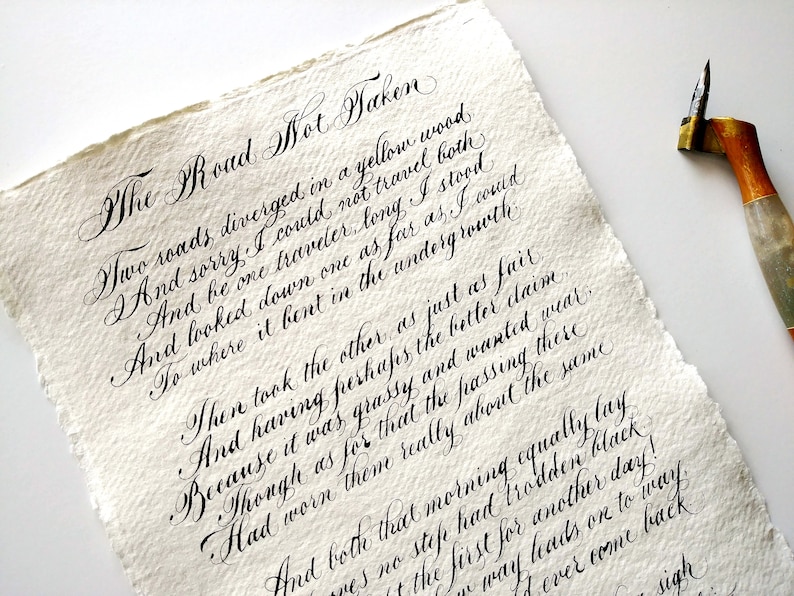 The Road Not Taken
Two roads diverged in a yellow wood
And sorry I could not travel both
And be one traveler, long I stood
And looked down one as far as I could
To where it bent in the undergrowth
Then took the other, as just as fair,
And having perhaps the better claim,
Because it was grassy and wanted wear,
Though as for that the passing there
Had worn them really about the same
And both that morning equally lay
no step had trodden black
the first for another day!
way leads on to way,
ever come back
sigh